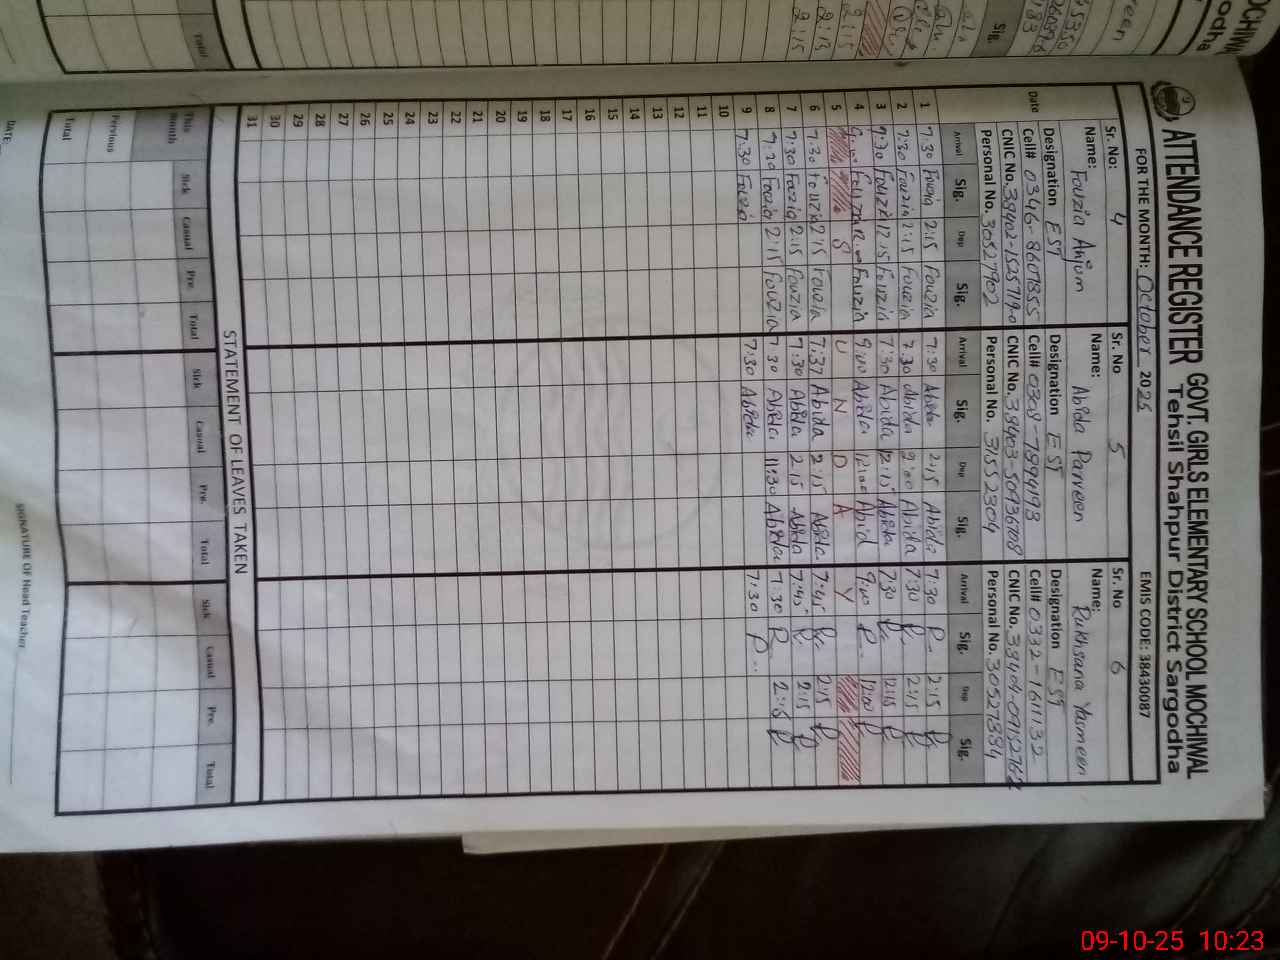 ATTENDANCE REGISTER GOVT. GIRLS ELEMENTARY SCHOOL MOCHIWAL
Tehsil Shahpur District Sargodha
FOR THE MONTH: October 2025 EMIS CODE: 38430087
Sr. No: 4 Sr. No 5 Sr. No 6
Name: Fouzia Anjum Name: Abida Parveen Name: Rukhsana Yasmeen
Designation EST Designation EST Designation EST
Cell# 0346-8607855 Cell# 0308-7894193 Cell# 0332-1611132
CNIC No. CNIC No. 38403-50936708 CNIC No.
Personal No. 30527902 Personal No. 31552304 Personal No. 30527884
Date Arrival Sig. Dep Sig. Arrival Sig. Dep Sig. Arrival Sig. Dep Sig.
1 7:30 Fouzia 2:15 Fouzia 7:30 Abida 2:15 Abida 7:30 R 2:15 R
2 7:30 Fouzia 2:15 Fouzia 7:30 Abida 9:00 Abida 7:30 R 2:15 R
3 7:30 Fouzia 12:15 Fouzia 7:30 Abida 12:15 Abida 7:30 R 12:15 R
4 Fouzia 9:00 Abida 12:00 Abid 9:00 R 12:00 R
5 S U N D A Y
6 7:30 Fouzia 2:15 Fouzia 7:37 Abida 2:15 Abida 7:45 R 2:15 R
7 7:30 Fouzia 2:15 Fouzia 7:30 Abida 2:15 Abida 7:45 R 2:15 R
8 7:30 Fouzia 2:15 Fouzia 7:30 Abida 11:30 Abida 7:30 R 2:15 R
9 7:30 Fouzia 7:30 Abida 7:30 R
10
11
12
13
14
15
16
17
18
19
20
21
22
23
24
25
26
27
28
29
30
31
STATEMENT OF LEAVES TAKEN
This month Sick Casual Pre. Total Sick Casual Pre. Total Sick Casual Pre. Total
Pervious
Total
DATE:
SIGNATURE OF Head Teacher
Total
2:15
2:15
2:15
Sig.
09-10-25 10:23